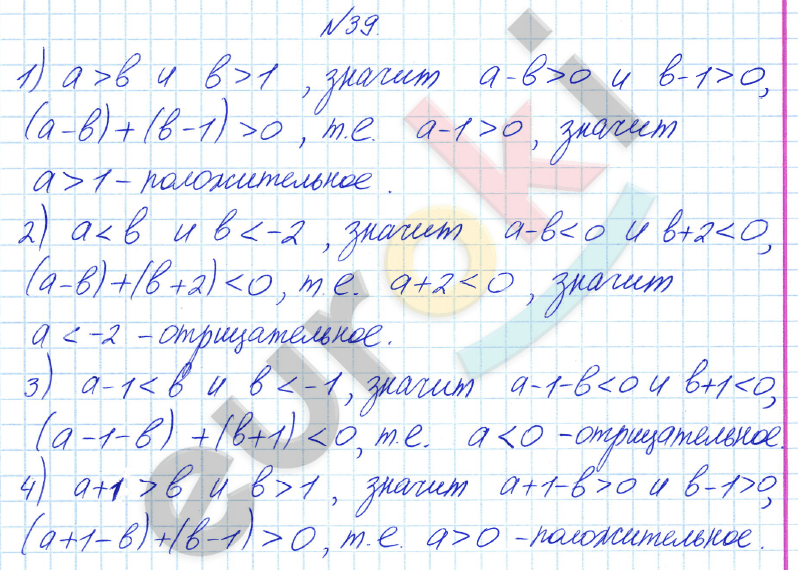 №39.
1) а>в и в>1, значит а-в>0 и в-1>0,
(а-в)+(в-1)>0, т.е. а-1>0, значит
а>1 - положительное.
2) а<в и в<-2, значит а-в<0 и в+2<0,
(а-в)+(в+2)<0, т.е. а+2<0, значит
а<-2 - отрицательное.
3) а-1<в и в<-1, значит а-1-в<0 и в+1<0,
(а-1-в)+(в+1)<0, т.е. а<0 - отрицательное.
4) а+1>в и в>1, значит а+1-в>0 и в-1>0,
(а+1-в)+(в-1)>0, т.е. а>0 - положительное.
euroki